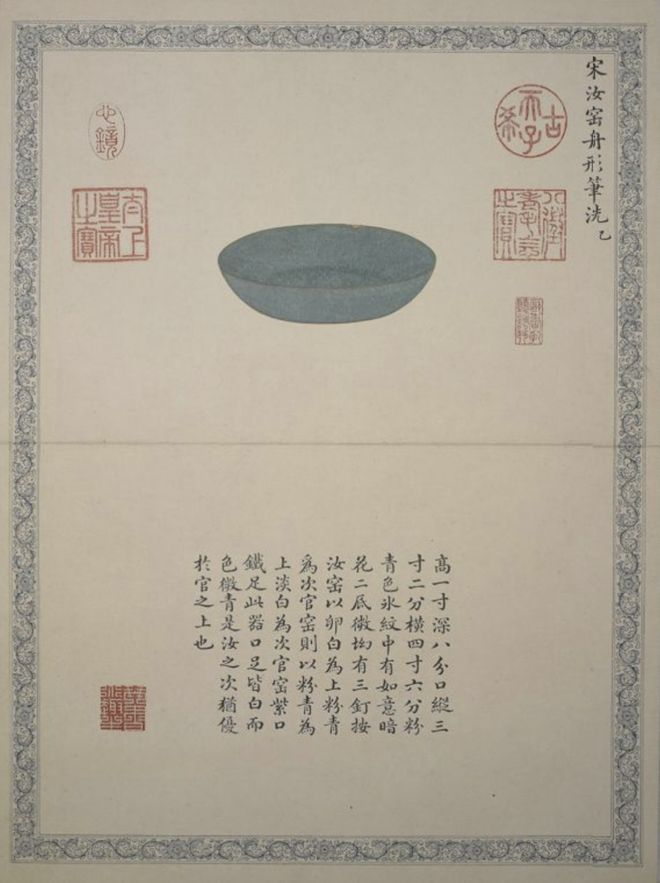 宋汝窑舟形筆洗 乙
古希天子
八徵耄念之寶
心鏡
太上皇帝之寶
高一寸深八分口縱三
寸二分橫四寸六分粉
青色氷紋中有如意暗
花二底微坳有三釘按
汝窑以卵白為上粉青
爲次官窑則以粉青為
上淡白為次官窑紫口
鐵足此器口足皆白而
色微青是汝之次猶優
於官之上也